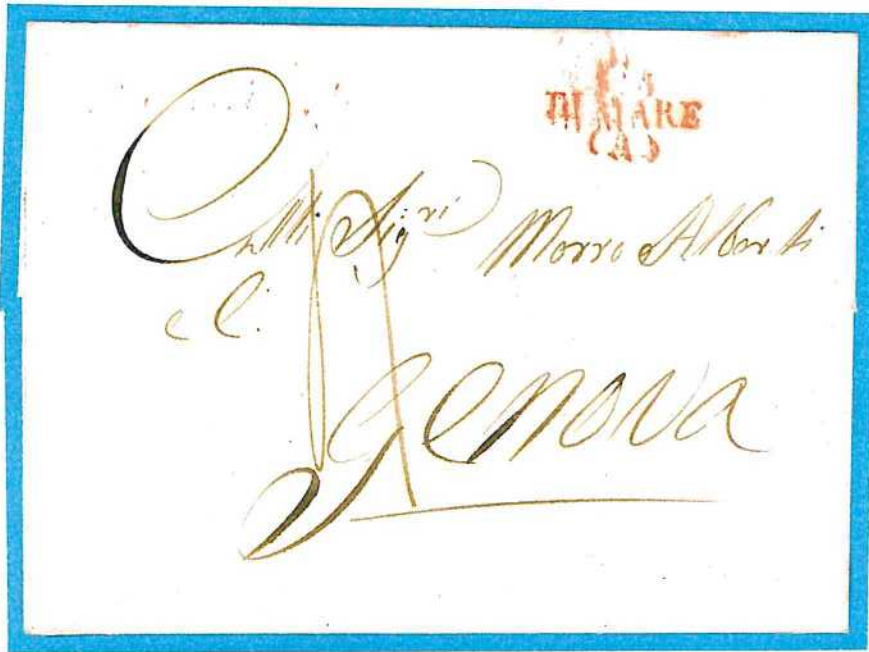 DI MARE
(A)
Sig.ri Morro Alberti
e C.
Genova